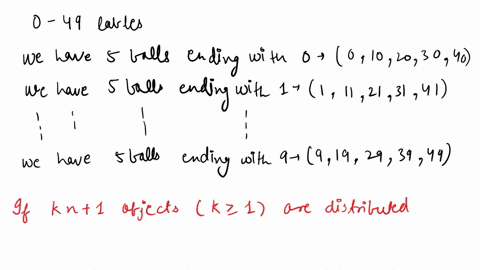 0 - 49 lables
we have 5 balls ending with 0 → (0, 10, 20, 30, 40)
we have 5 balls ending with 1 → (1, 11, 21, 31, 41)
we have 5 balls ending with 9 → (9, 19, 29, 39, 49)
If kn+1 objects (k ≥ 1) are distributed